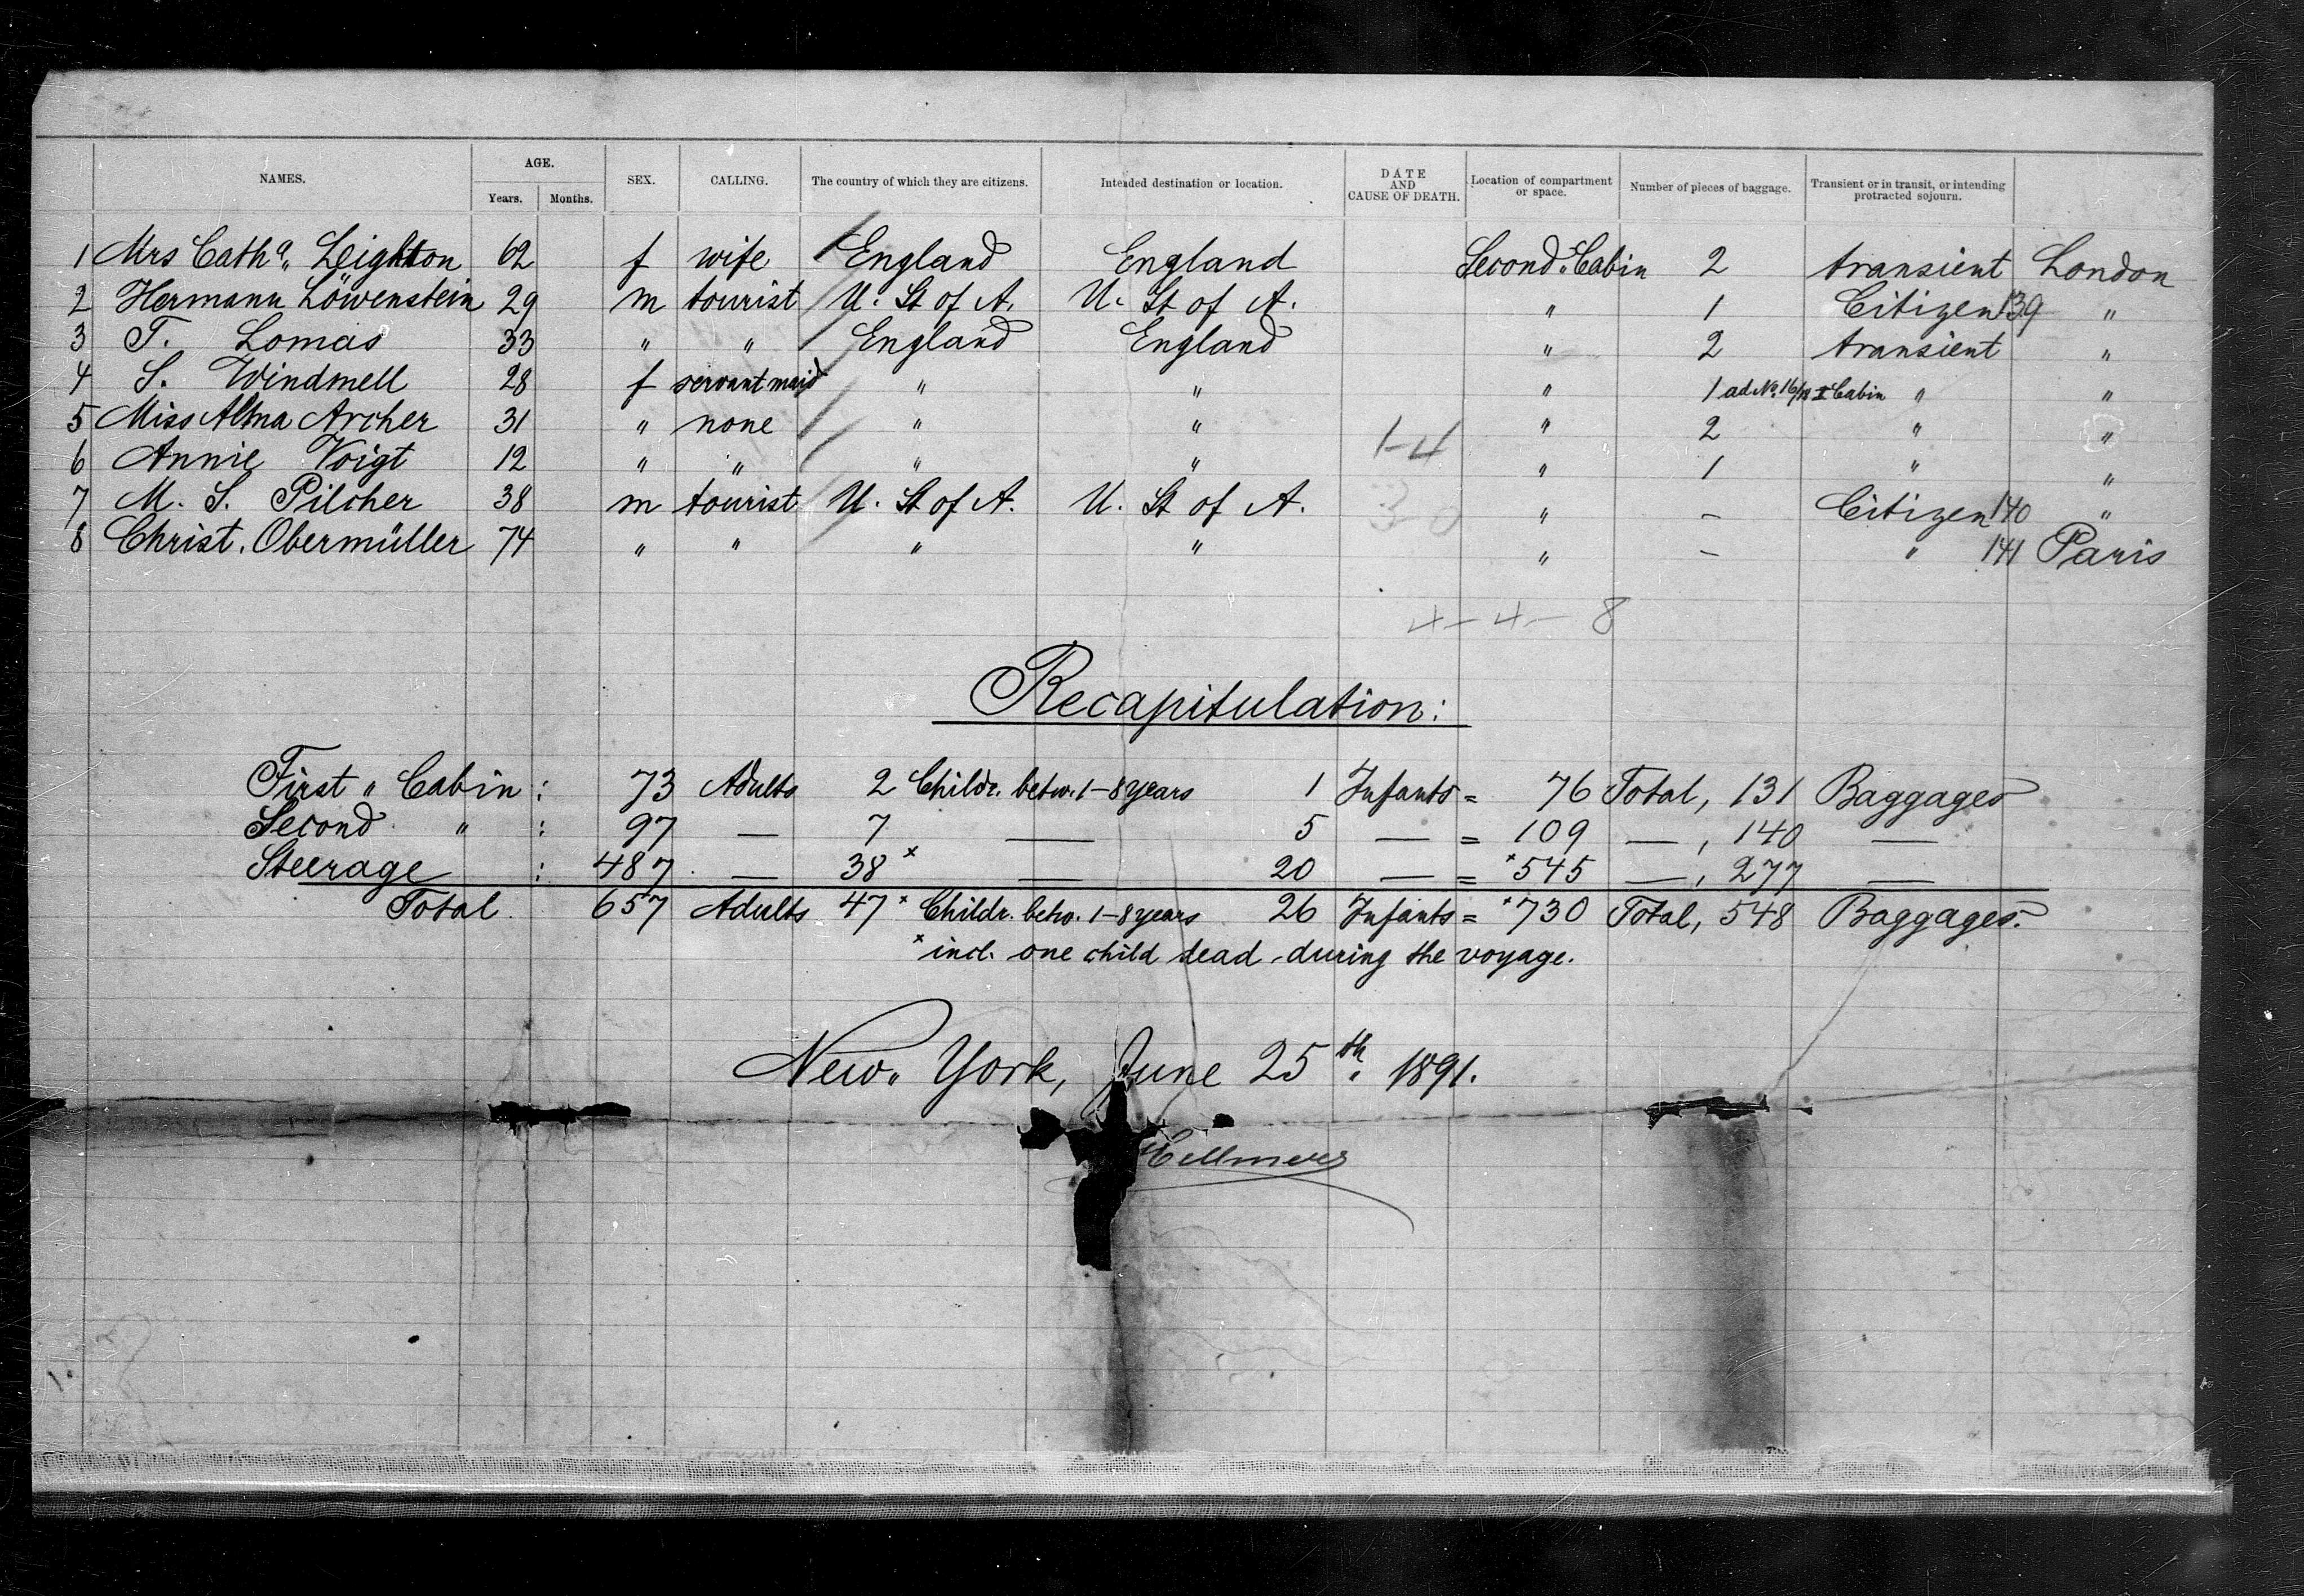 NAMES. AGE. Years. Months. SEX. CALLING. The country of which they are citizens. Intended destination or location. DATE AND CAUSE OF DEATH. Location of compartment or space. Number of pieces of baggage. Transient or in transit, or intending protracted sojourn.
1 Mrs Cath a. Leighton 62 f wife England England Second „ Cabin 2 transient London
2 Hermann Löwenstein 29 m tourist U. St of A. U. St of A. „ 1 Citizen 139 „
3 T. Lomas 33 „ „ England England „ 2 transient „
4 S. Windmell 28 f servant maid „ „ „ 1 ad No. 16/18 II Cabin „ „
5 Miss Alma Archer 31 „ none „ „ „ 2 „ „
1-4
6 Annie Voigt 12 „ „ „ „ „ 1 „ „
7 M. S. Pilcher 38 m tourist U. St of A. U. St of A. „ – Citizen 140 „
30
8 Christ. Obermüller 74 „ „ „ „ „ – „ 141 Paris
4-4-8
Recapitulation:
First „ Cabin : 73 Adults 2 Childr. betw. 1-8 years 1 Infants = 76 Total, 131 Baggages
Second „ : 97 — 7 — 5 — = 109 —, 140 —
Steerage : 487 — 38 x — 20 — = x 545 —, 277 —
Total 657 Adults 47 x Childr. betw. 1-8 years 26 Infants = x 730 Total, 548 Baggages.
x incl. one child dead during the voyage.
New „ York, June 25th. 1891.
Hellmers